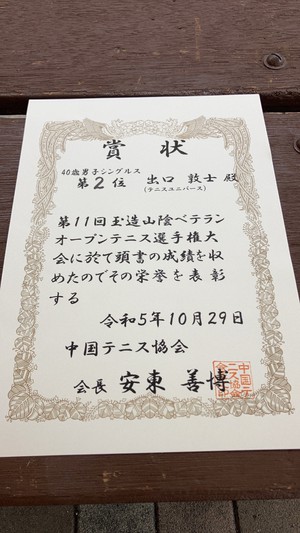 賞状
40歳男子シングルス
第2位 出口 敦士 殿
(テニスユニバース)
第11回玉造山陰ベテラン
オープンテニス選手権大
会に於て頭書の成績を収
めたのでその栄誉を表彰
する
令和5年10月29日
中国テニス協会
会長 安東 善博